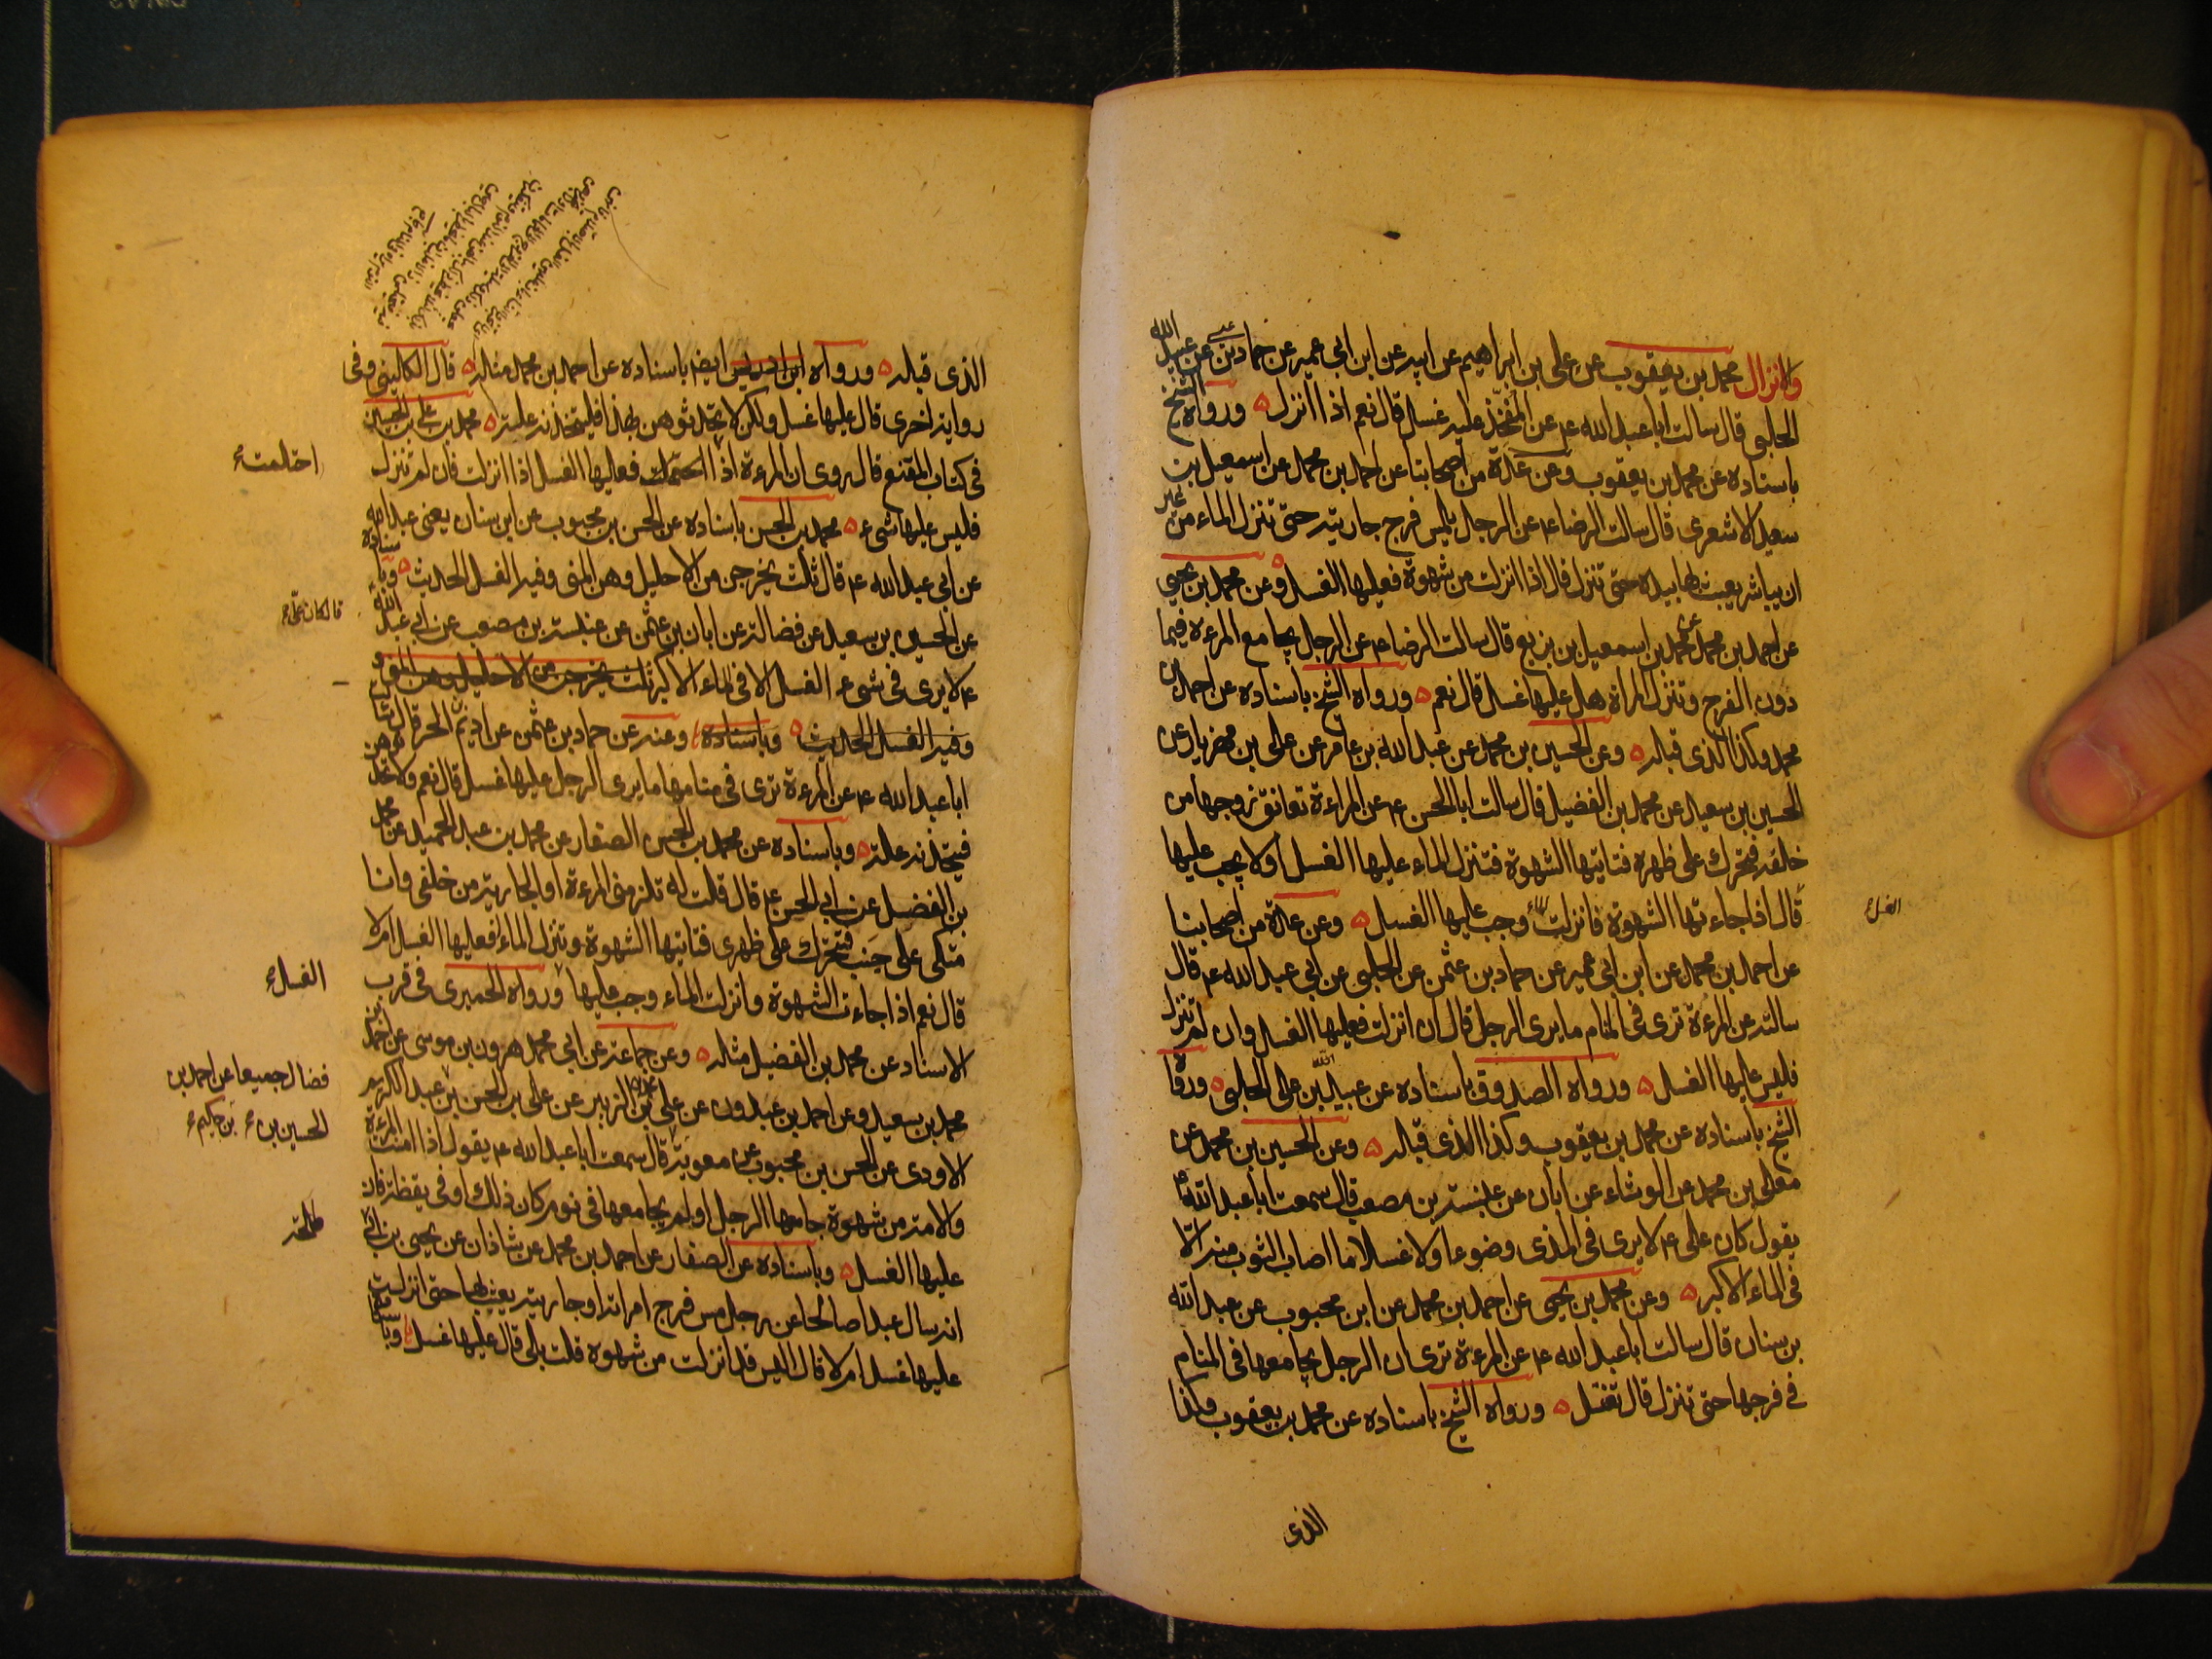 والانزال محمد بن يعقوب عن على بن ابراهيم عن ابيه عن ابن ابى عمير عن حماد بن عن عبيد الله
الحلبى قال سالت ابا عبد الله ع عن المفخذ عليه غسل قال نعم اذا انزل ورواه الشيخ
باسناده عن محمد بن يعقوب وعن عدة من اصحابنا عن احمد بن محمد عن اسمعيل بن
سعد الاشعرى قال سالت الرضا ع عن الرجل يلمس فرج جاريته حتى تنزل الماء من غير
ان يباشر يعبث بها بيده حتى تنزل قال اذا انزلت من شهوة فعليها الغسل وعن محمد بن يحيى
عن احمد بن محمد عن محمد بن اسمعيل بن بزيع قال سالت الرضا ع عن الرجل يجامع المرءة فيما
دون الفرج وتنزل المراة هل عليها غسل قال نعم ورواه الشيخ باسناده عن احمد بن
محمد وكذا الذى قبله وعن الحسين بن محمد عن عبد الله بن عامر عن على بن مهزيار عن
الحسين بن سعيد عن محمد بن الفضيل قال سالت ابا الحسن ع عن المراءة تعانق زوجها من
خلفه فتحرك على ظهره فتاتيها الشهوة فتنزل الماء عليها الغسل او لا يجب عليها
الغسل
قال اذا جاءتها الشهوة فانزلت الماء وجب عليها الغسل وعن عدة من اصحابنا
عن احمد بن محمد عن ابن ابى عمير عن حماد بن عثمن عن الحلبى عن ابى عبد الله ع قال
سالته عن المرءة ترى فى المنام ما يرى الرجل قال ان انزلت فعليها الغسل وان لم تنزل
فليس عليها الغسل ورواه الصدوق باسناده عن عبيد الله بن على الحلبى ورواه
الشيخ باسناده عن محمد بن يعقوب وكذا الذى قبله وعن الحسين بن محمد عن
معلى بن محمد عن الوشاء عن ابان عن عنبسة بن مصعب قال سمعت ابا عبد الله ع
يقول كان على ع لا يرى فى المذى وضوءا ولا غسلا ما اصاب الثوب منه الا
فى الماء الاكبر وعن محمد بن يحيى عن احمد بن محمد عن ابن محبوب عن عبد الله
بن سنان قال سالت ابا عبد الله ع عن المرءة ترى ان الرجل يجامعها فى المنام
فى فرجها حتى تنزل قال تغتسل ورواه الشيخ باسناده عن محمد بن يعقوب وكذا
الذى
الذى قبله ورواه ابن ادريس ايضا باسناده عن احمد بن محمد مثله قال الكلينى وفى
رواية اخرى قال عليها غسل ولكن لا تحدثوهن بهذا فليتخذنه علة محمد بن على بن الحسين
فى كتاب المقنع قال روى ان المرءة اذا احتملت فعليها الغسل اذا انزلت فان لم تنزل
احتلمت
فليس عليها شىء محمد بن الحسن باسناده عن الحسن بن محبوب عن ابن سنان يعنى عبد الله
عن ابى عبد الله ع قال ثلث يخرجن من الاحليل وهن المنى وفيه الغسل الحديث وباسناده
عن الحسين بن سعيد عن فضالة عن ابان بن عثمن عن عنبسة بن مصعب عن ابى عبد الله
قال كان على
ع لا يرى فى شىء الغسل الا فى الماء الاكبر ثلث يخرجن من الاحليل وهن المنى و
وفيه الغسل الحديث وباسناده وعنه عن حماد بن عثمن عن اديم بن الحر قال سالت
ابا عبد الله ع عن المرءة ترى فى منامها ما يرى الرجل عليها غسل قال نعم ولا تحدثوهن
فيتخذنه علة وباسناده عن محمد بن الحسن الصفار عن محمد بن عبد الحميد عن محمد
بن الفضيل عن ابى الحسن ع قال قلت له تلزمنى المرءة او الجارية من خلفى وانا
متكى على جنب فتتحرك على ظهرى فتاتيها الشهوة وتنزل الماء افعليها الغسل ام لا
قال نعم اذا جاءت الشهوة وانزلت الماء وجب عليها ورواه الحميرى فى قرب
الغسل
الاسناد عن محمد بن الفضيل مثله وعن جماعة عن ابى محمد هرون بن موسى عن احمد بن
محمد بن سعيد وعن احمد بن عبدون عن على بن محمد بن الزبير عن على بن الحسن بن عبد الكريم
فضال جميعا عن احمد بن
الحسين بن بن حكيم
الاودى عن الحسن بن محبوب عن معوية قال سمعت ابا عبد الله ع يقول اذا امنت المرءة
والامة من شهوة جامعها الرجل او لم يجامعها فى نوم كان ذلك او فى يقظة فان
عليها الغسل وباسناده عن الصفار عن احمد بن محمد عن شاذان عن يحيى بن ابى
طلحة
انه سال عبدا صالحا عن رجل مس فرج امراته او جاريته يعبث بها حتى انزلت
عليها غسل ام لا قال اليس قد انزلت من شهوة قلت بلى قال عليها غسل وباسناده